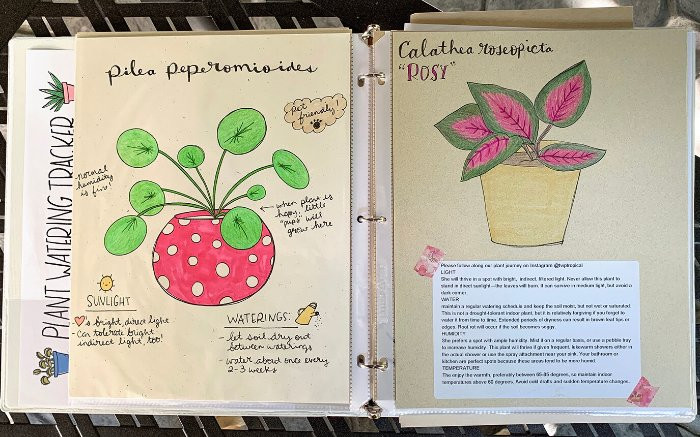 PLANT WATERING TRACKER
Pilea Peperomioides
pet
friendly!
normal
humidity
is fine!
when plant is
happy, little
"pups" will
grow here
SUNLIGHT
's bright, direct light
- Can tolerate bright,
indirect light, too!
WATERINGS:
- let soil dry out
between waterings
- water about once every
2-3 weeks
Calathea roseopicta
"ROSY"
Please follow along our plant journey on Instagram
LIGHT
She will thrive in a spot with bright, indirect, filtered light. Never allow this plant to
stand in direct sunlight—the leaves will burn. It can survive in medium light, but avoid a
dark corner.
WATER
maintain a regular watering schedule and keep the soil moist, but not wet or saturated.
This is not a drought-tolerant indoor plant, but it is relatively forgiving if you forget to
water it from time to time. Extended periods of dryness can result in brown leaf tips or
edges. Root rot will occur if the soil becomes soggy.
HUMIDITY
She prefers a spot with ample humidity. Mist it on a regular basis, or use a pebble tray
to increase humidity. This plant will thrive if given frequent, lukewarm showers either in
the actual shower or use the spray attachment near your sink. Your bathroom or
kitchen are perfect spots because these areas tend to be more humid.
TEMPERATURE
The enjoy the warmth, preferably between 65-85 degrees, so maintain indoor
temperatures above 60 degrees. Avoid cold drafts and sudden temperature changes.